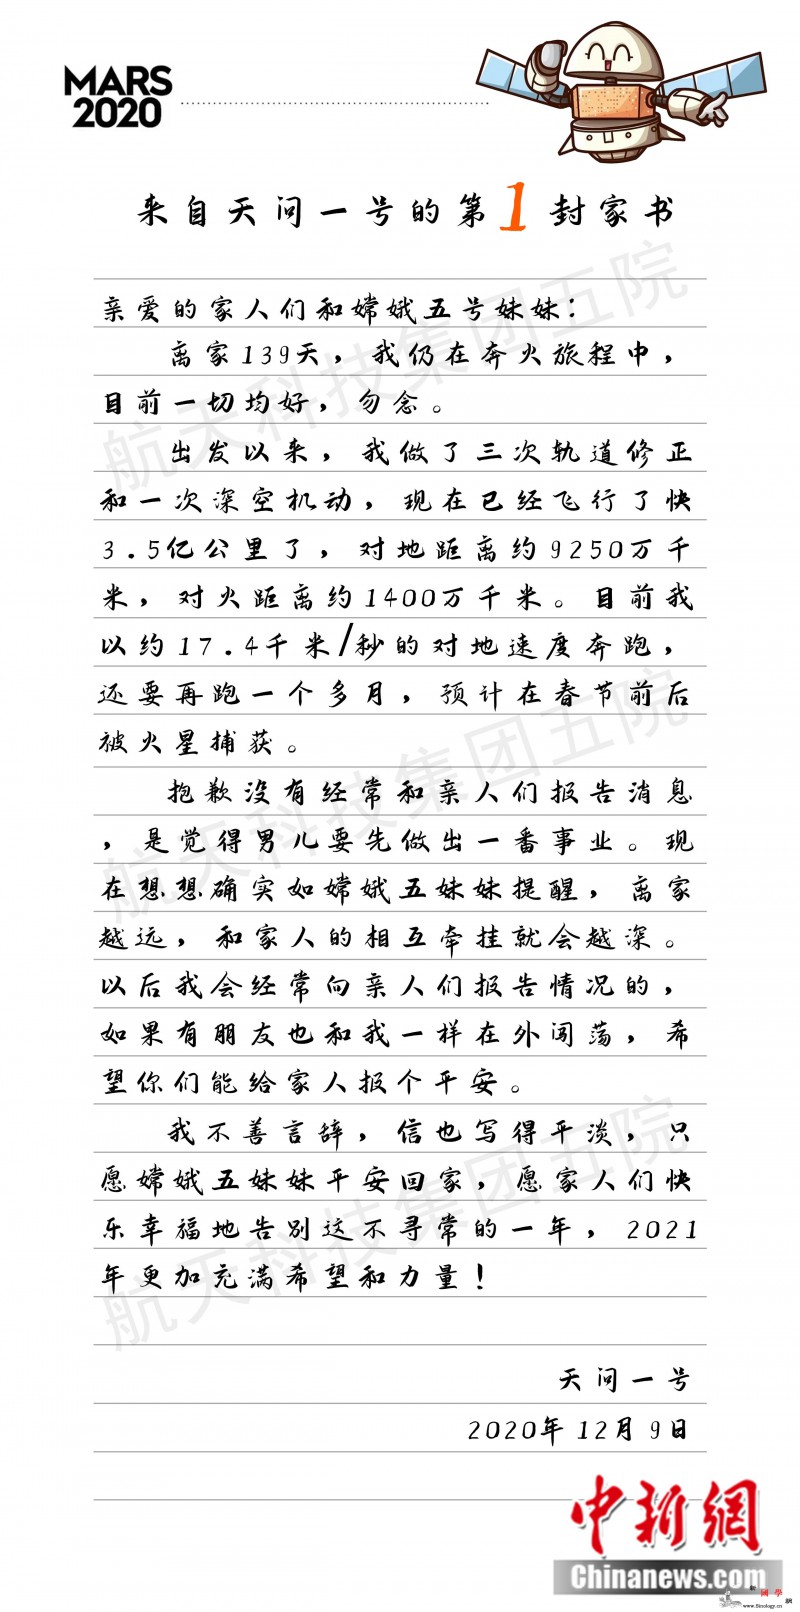 MARS
2020
来自天问一号的第1封家书
亲爱的家人们和嫦娥五号妹妹：
离家139天，我仍在奔火旅程中，
目前一切均好，勿念。
出发以来，我做了三次轨道修正
和一次深空机动，现在已经飞行了快
3.5亿公里了，对地距离约9250万千
米，对火距离约1400万千米。目前我
以约17.4千米/秒的对地速度奔跑，
还要再跑一个多月，预计在春节前后
被火星捕获。
抱歉没有经常和亲人们报告消息
，是觉得男儿要先做出一番事业。现
在想想确实如嫦娥五妹妹提醒，离家
越远，和家人的相互牵挂就会越深。
以后我会经常向亲人们报告情况的，
如果有朋友也和我一样在外闯荡，希
望你们能给家人报个平安。
我不善言辞，信也写得平淡，只
愿嫦娥五妹妹平安回家，愿家人们快
乐幸福地告别这不寻常的一年，2021
年更加充满希望和力量！
天问一号
2020年12月9日
航天科技集团五院
航天科技集团五院
航天科技集团五院
中新網
Chinanews.com
新國學網
www.Sinology.cn